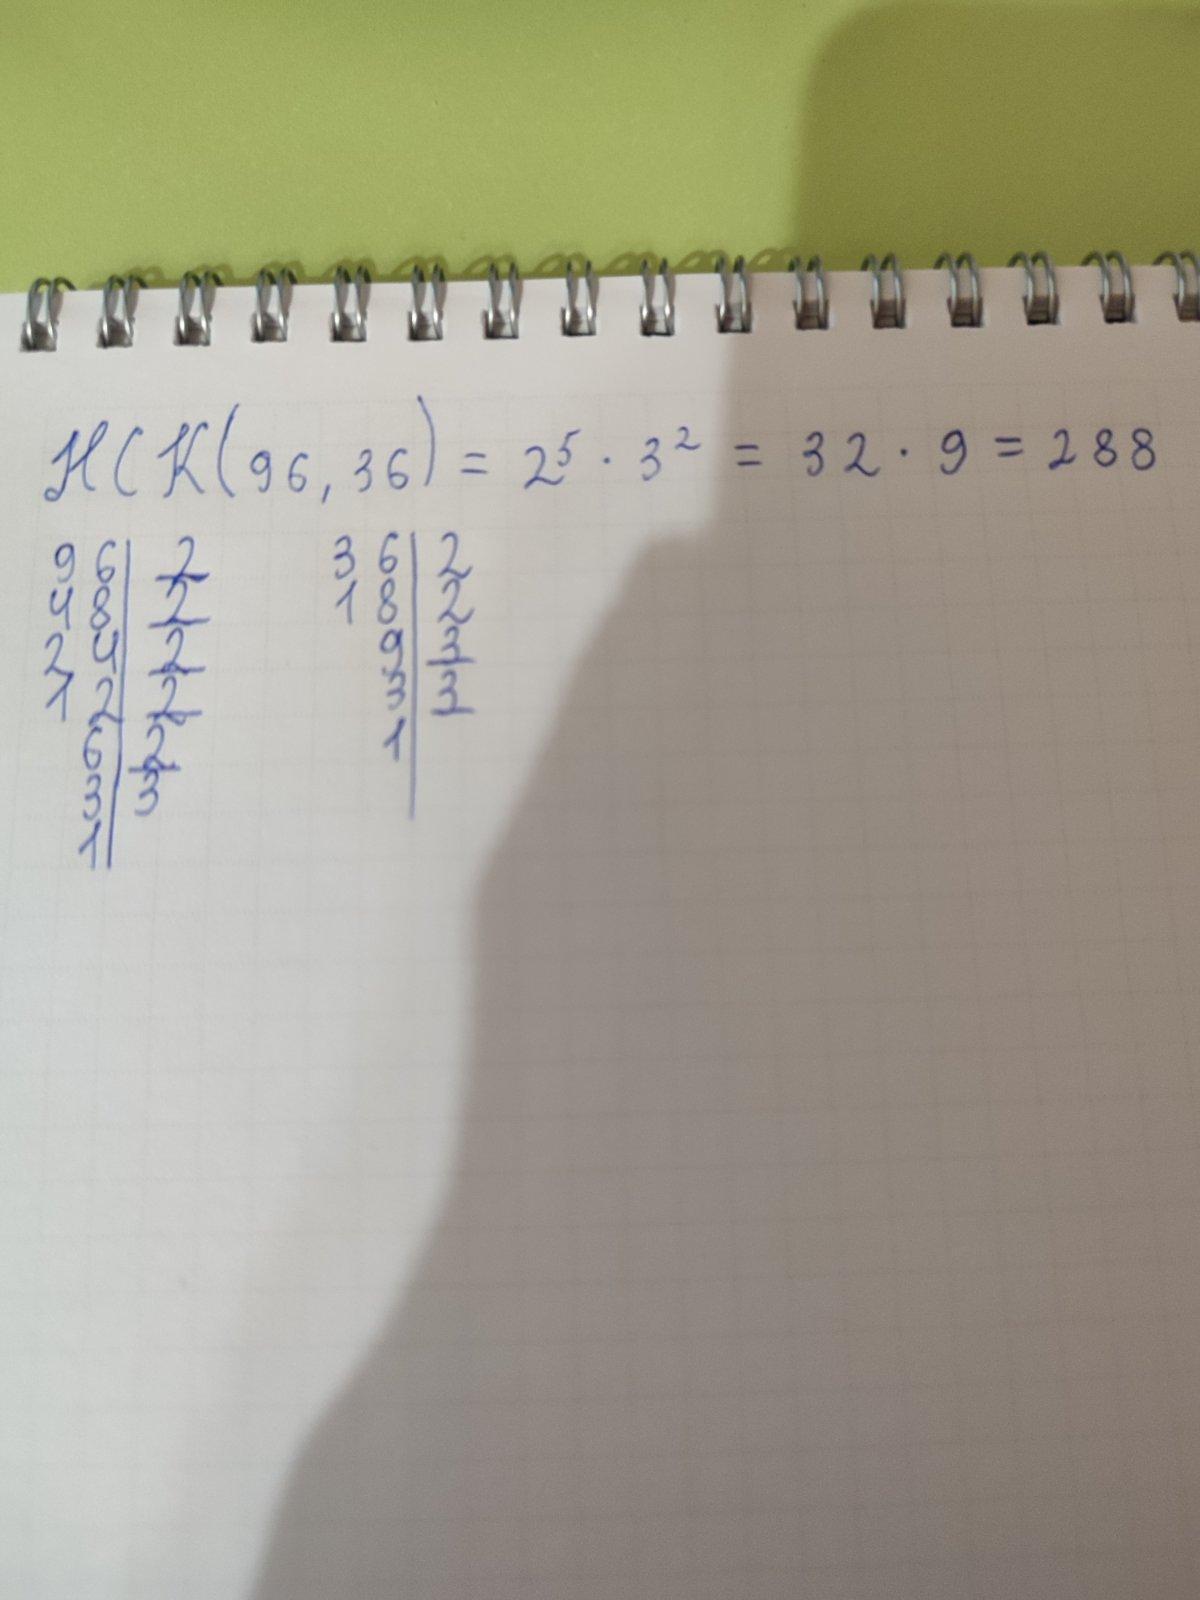 НСК(96, 36) = 2⁵ · 3² = 32 · 9 = 288
96 | 2 36 | 2
48 | 2 18 | 2
24 | 2 9 | 3
12 | 2 3 | 3
6 | 2 1 |
3 | 3
1 |